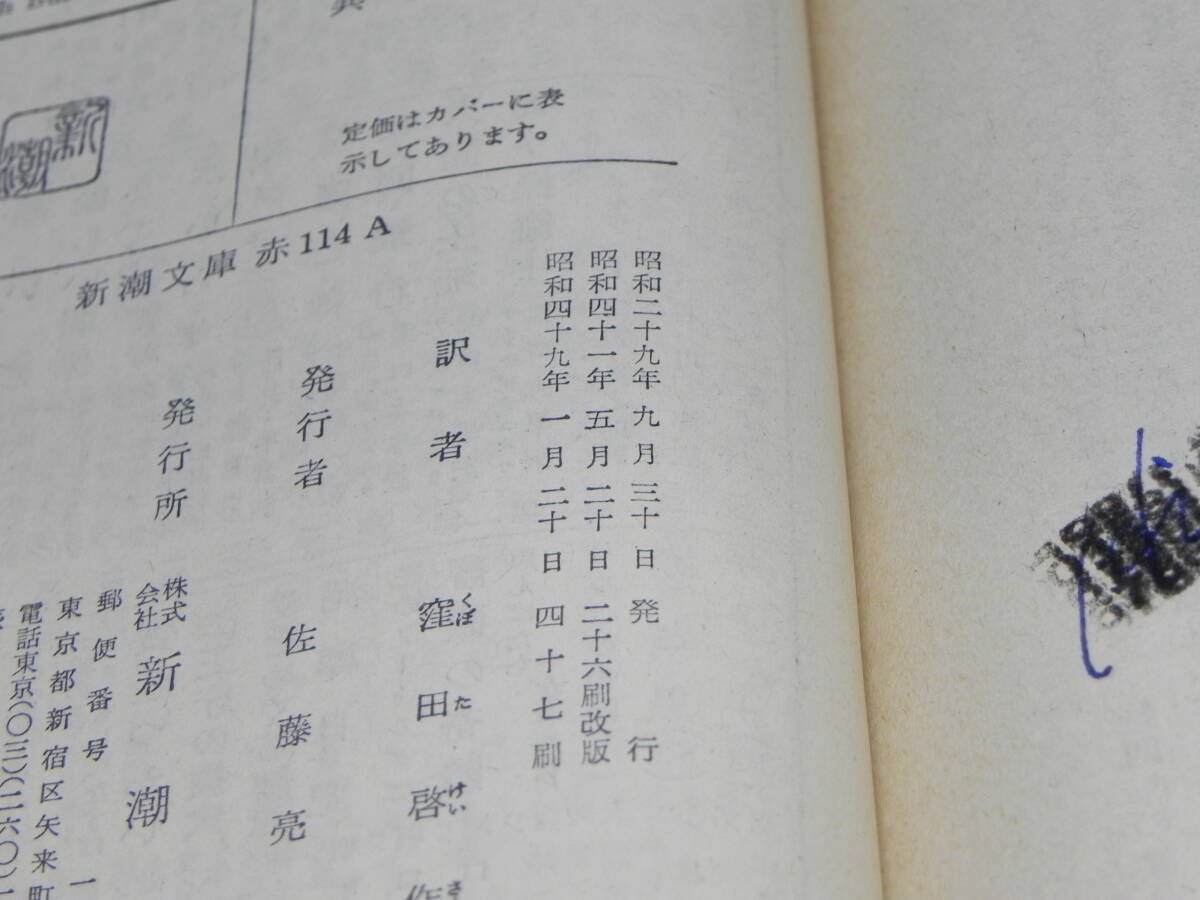 定価はカバーに表
示してあります。
新潮
新潮文庫 赤 114 A
昭和二十九年九月三十日 発行
昭和四十一年五月二十日 二十六刷改版
昭和四十九年一月二十日 四十七刷
訳者 窪田啓作
くぼ た けい さく
発行者 佐藤亮
発行所 株式会社 新潮
郵便番号 一
東京都新宿区矢来町
電話東京(〇三)(二六〇)一